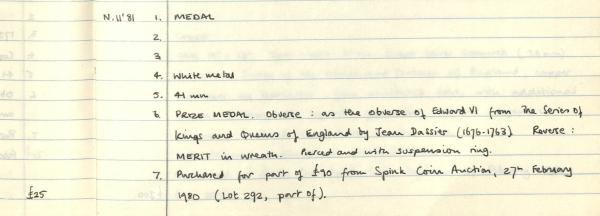 N.11'81 1. MEDAL
2.
3
4. White metal
5. 41 mm
6. PRIZE MEDAL. Obverse : as the obverse of Edward VI from the Series of
Kings and Queens of England by Jean Dassier (1676-1763). Reverse :
MERIT in wreath. Pierced and with suspension ring.
7. Purchased for part of £90 from Spink Coin Auction, 27th February
£25 1980 (Lot 292, part of).